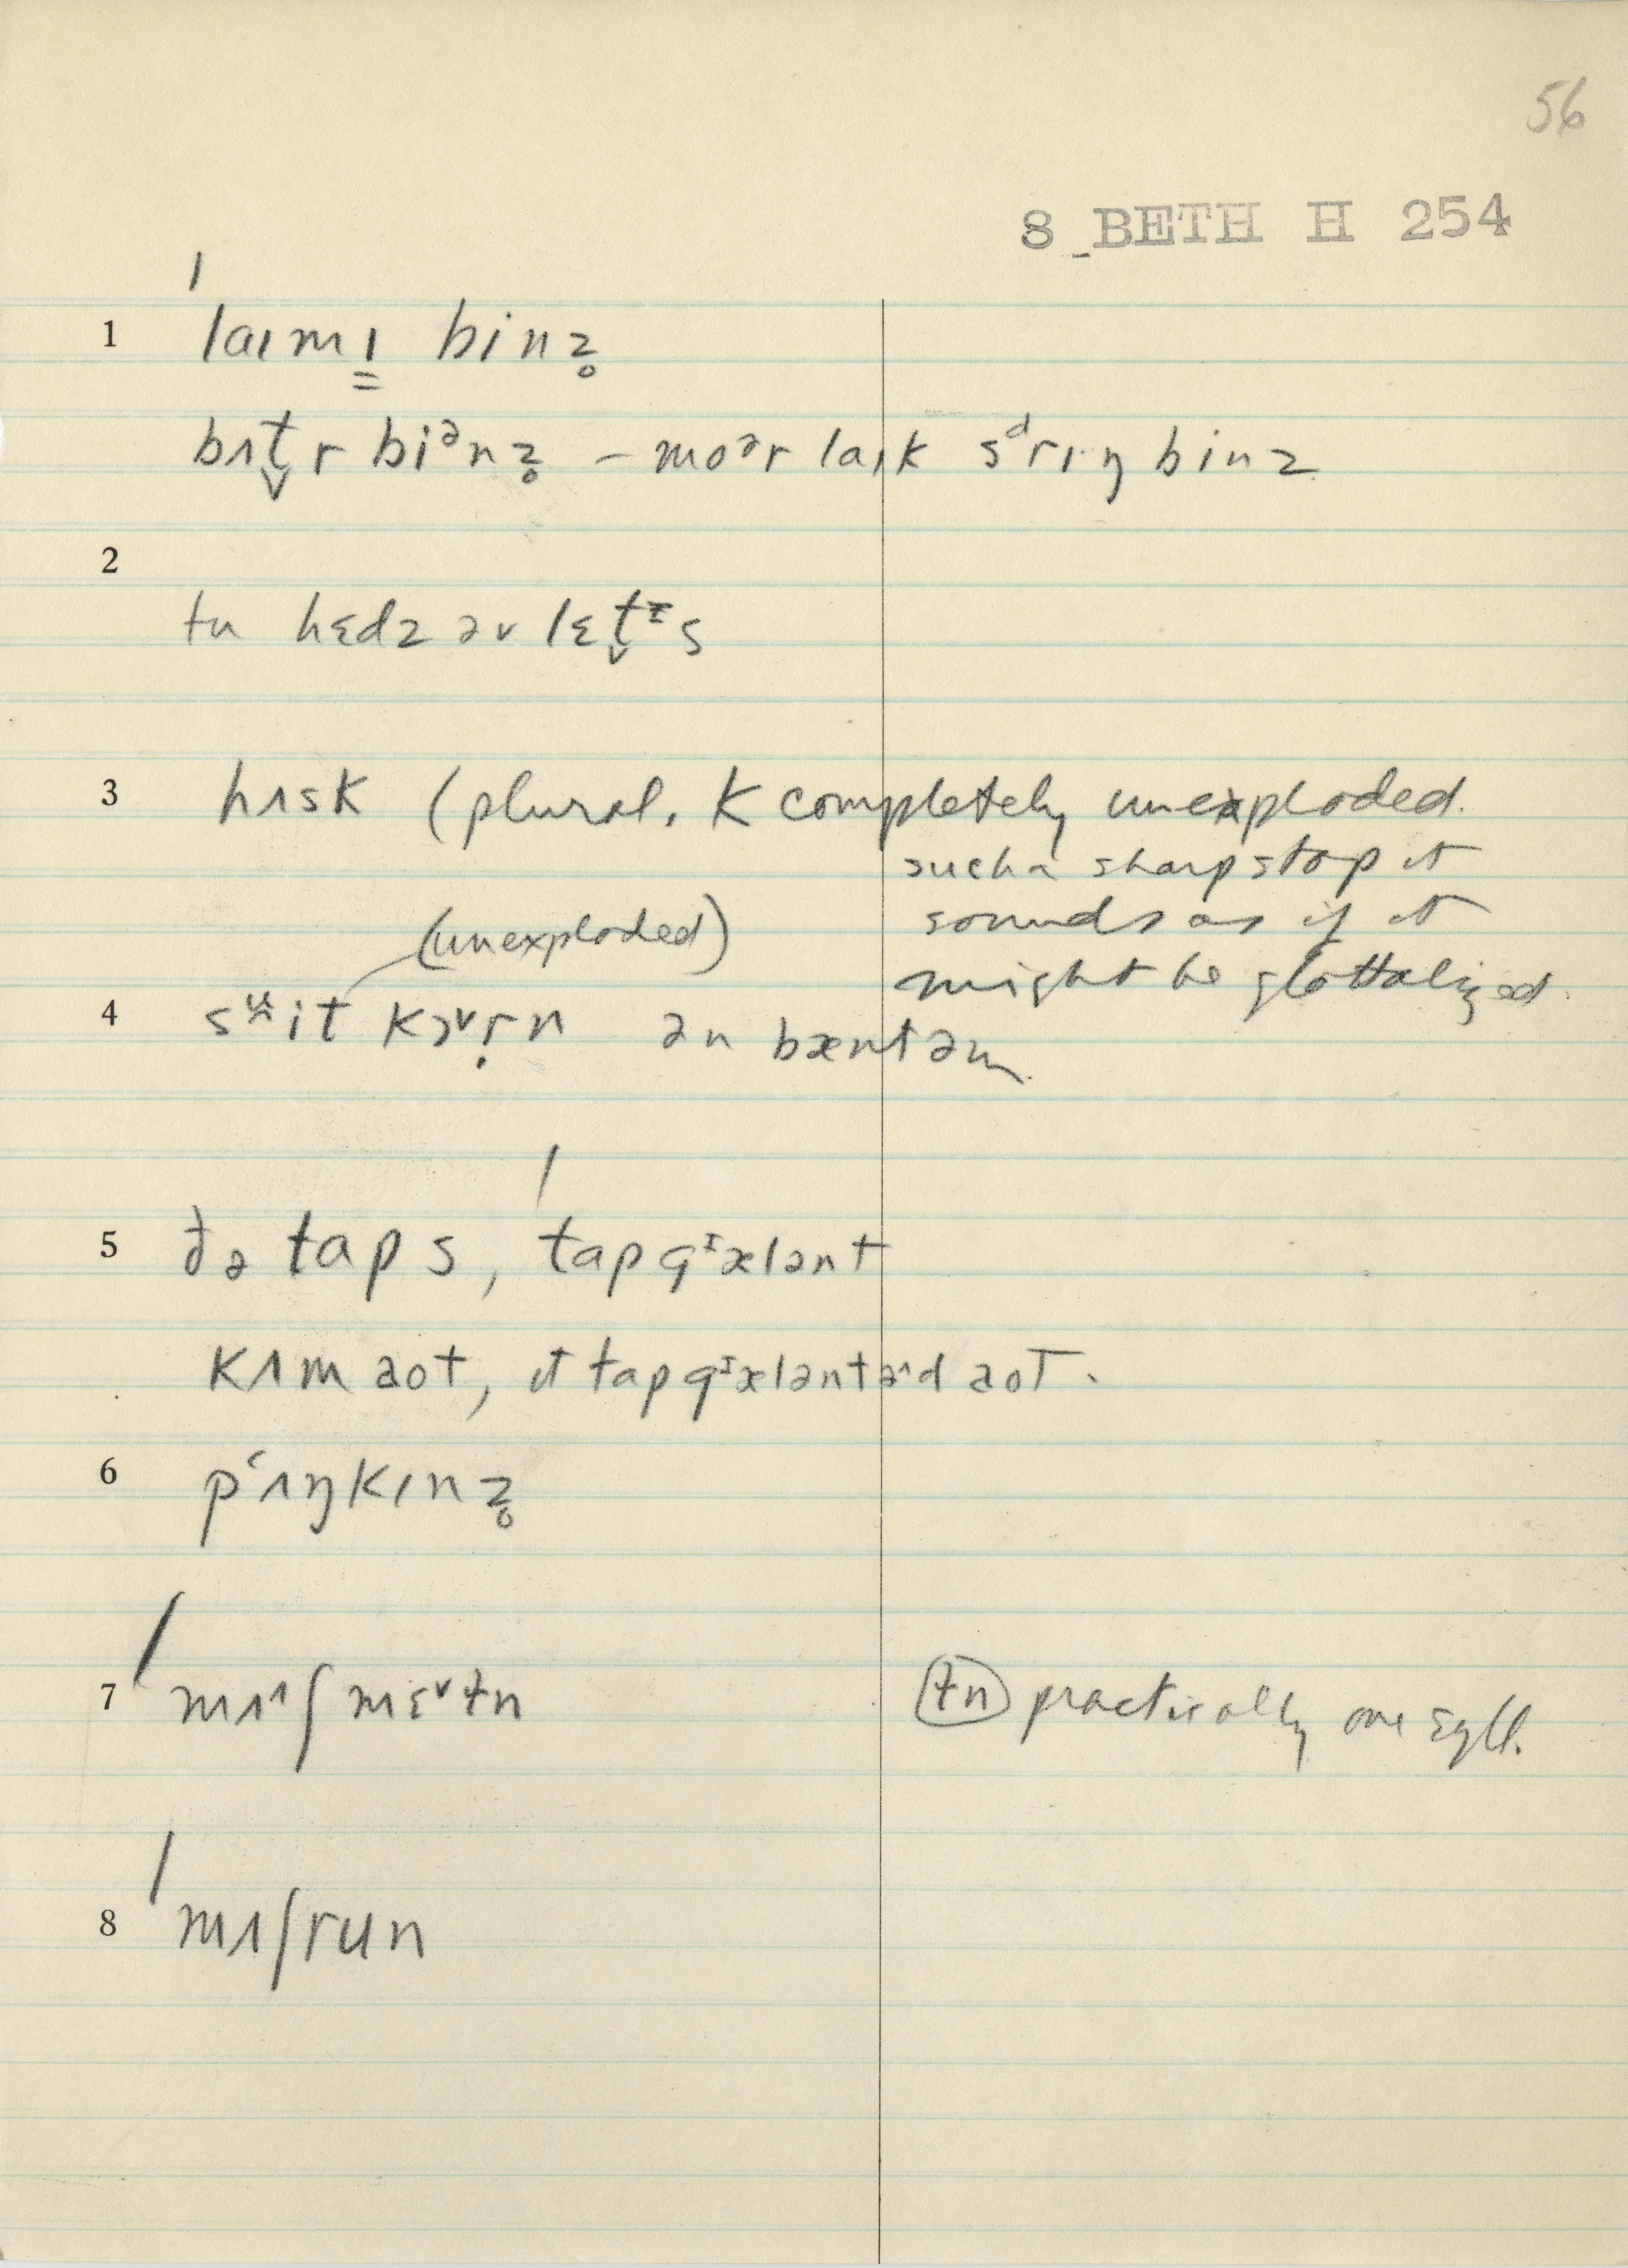 56
8 BETH H 254
1 ˈlaɪmɪ̳ binz̥
bʌt̬r biᵊnz̥ – moᵊr laɪk sᵈrɪŋ binz
2
tu hɛdz əv lɛt̬ᶦs
3 hʌsk (plural. k completely unexploded.
such a sharp stop it
sounds as if it
might be glottalized.
(unexploded)
4 sʷit kɔ˅ṛn ən bæntəm
5 ðə taps, ˈtapgᶦæлənt
kʌm aot, ɪt tapgᶦælənt əˆd aot.
6 pʻʌŋkɪnz̥
7 ˈmʌ^ʃmɛ˅tn tn practically one syll.
8 ˈmʌʃrun